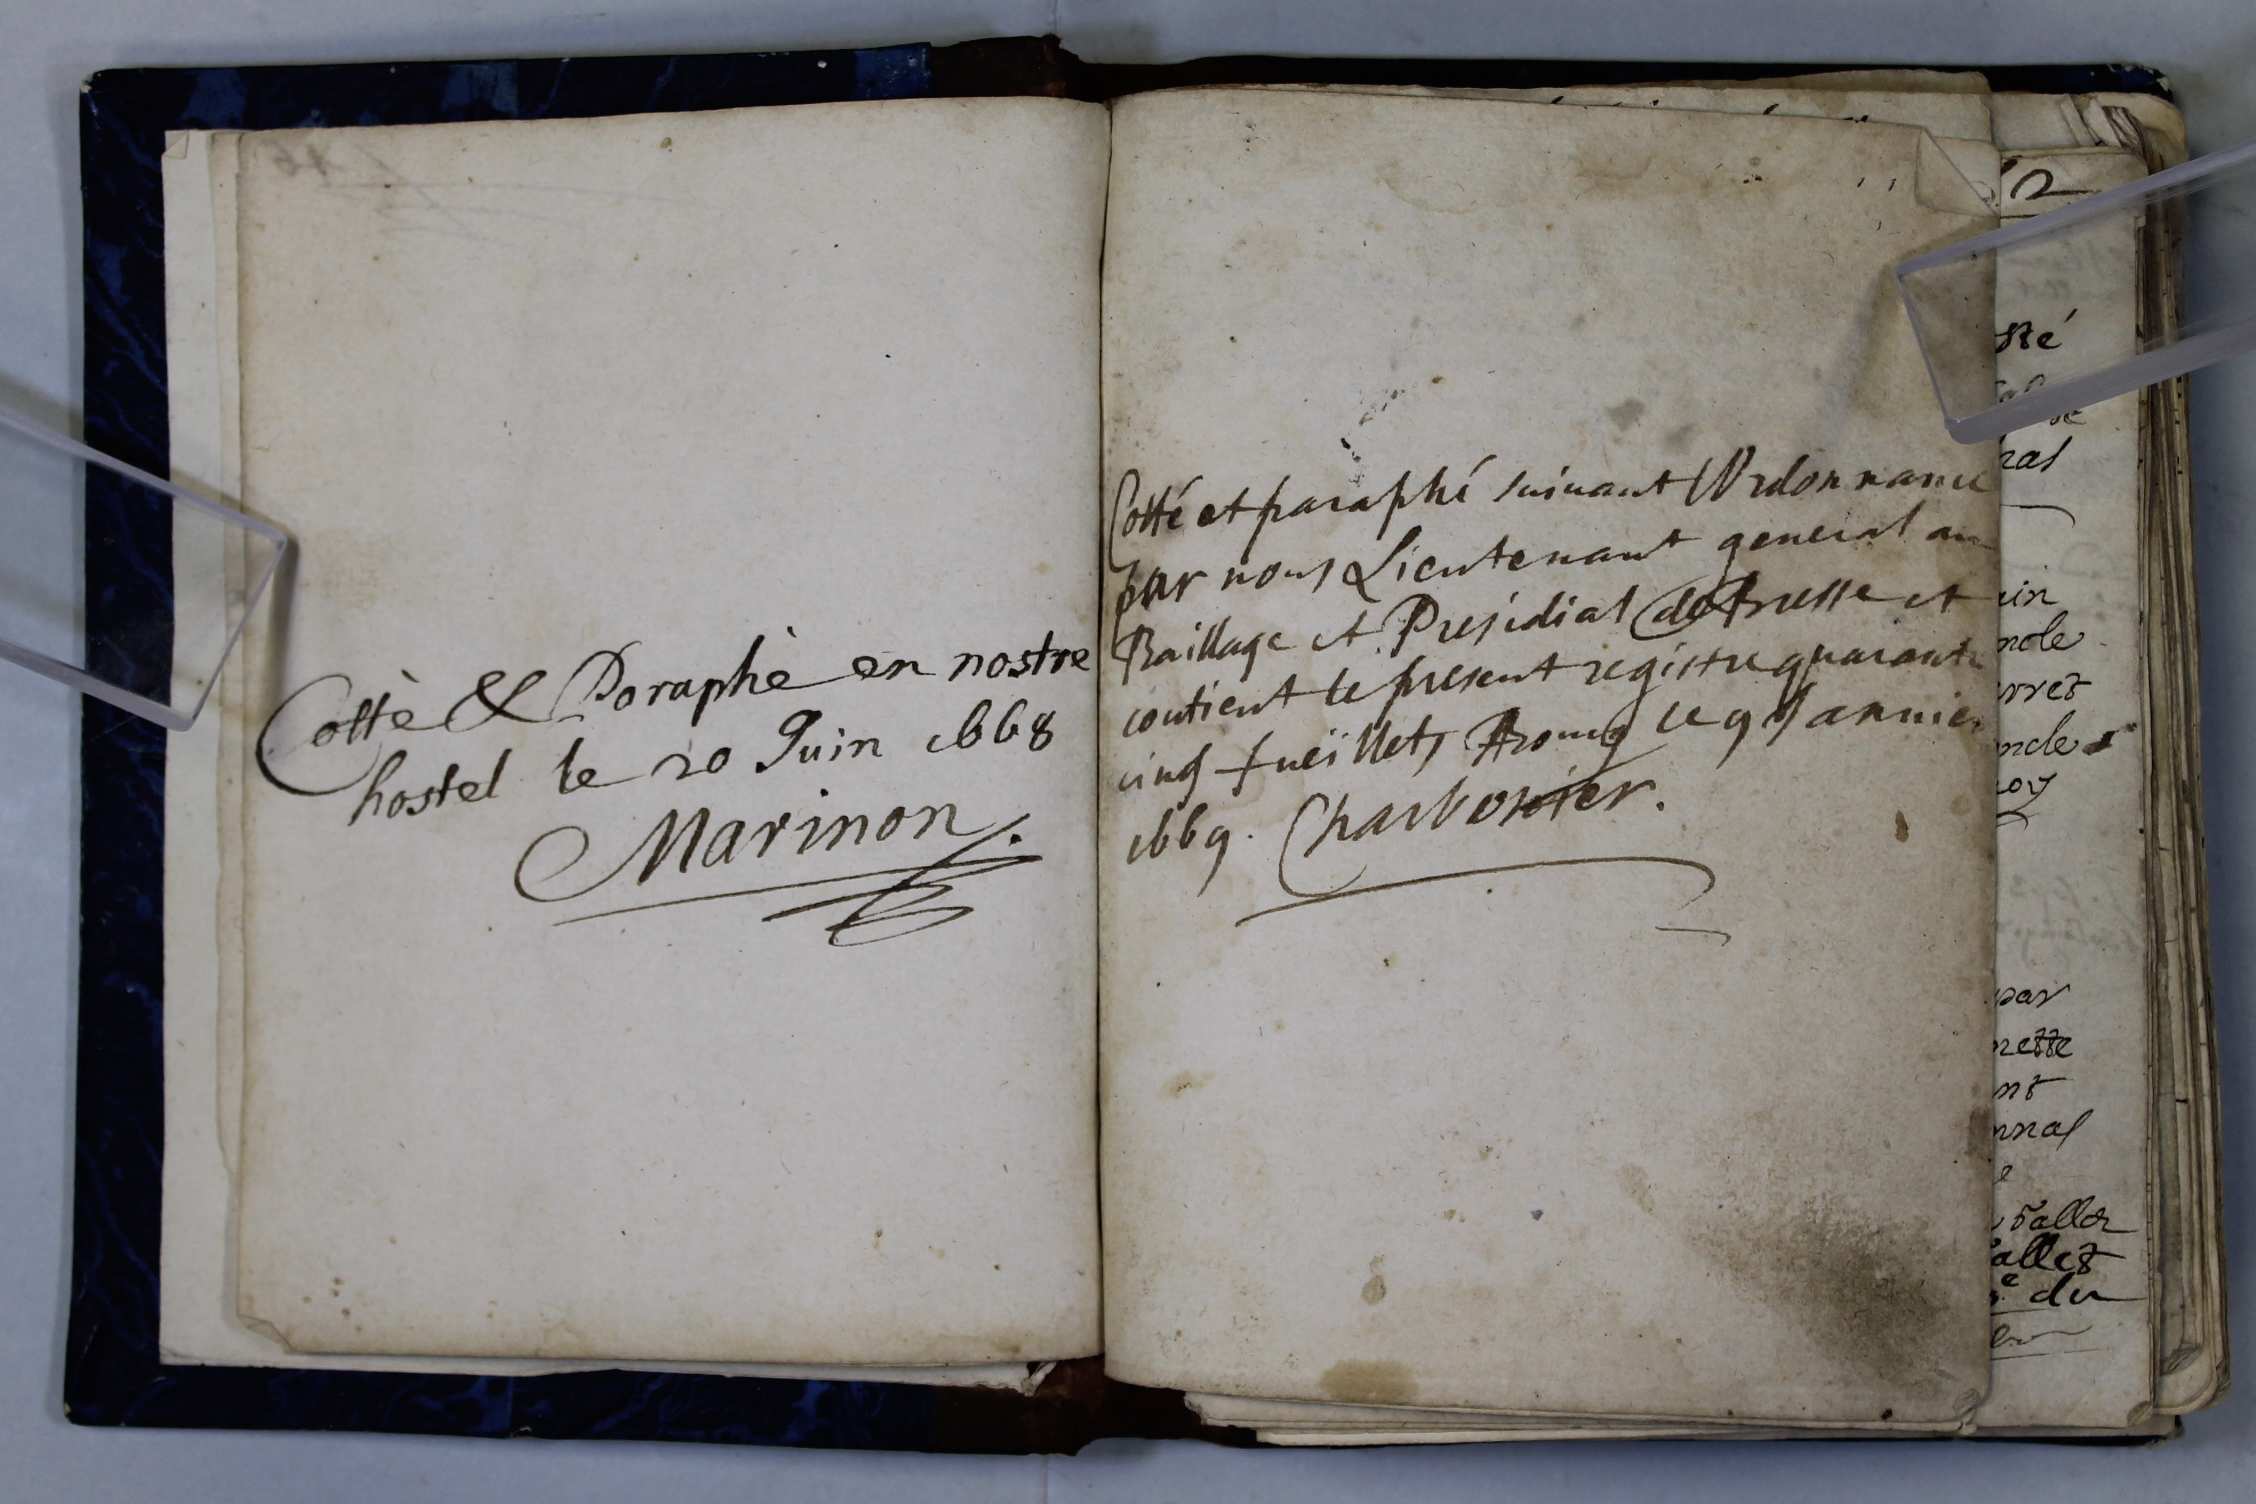 Cotté & Paraphé en nostre
hostel le 20 Juin 1668
Marinon
Cotté et paraphé suivant l'Ordonnance
par nous Lieutenant general au
Baillage et Presidial de Bresse et
contient le present registre quarante
cinq fueillets A Bourg le 9 Janvier
1669. Charbonier.
2
sté
nal
uin
nole
rret
ncle
roy
par
nette
nt
nnal
e
Vallet
allet
du